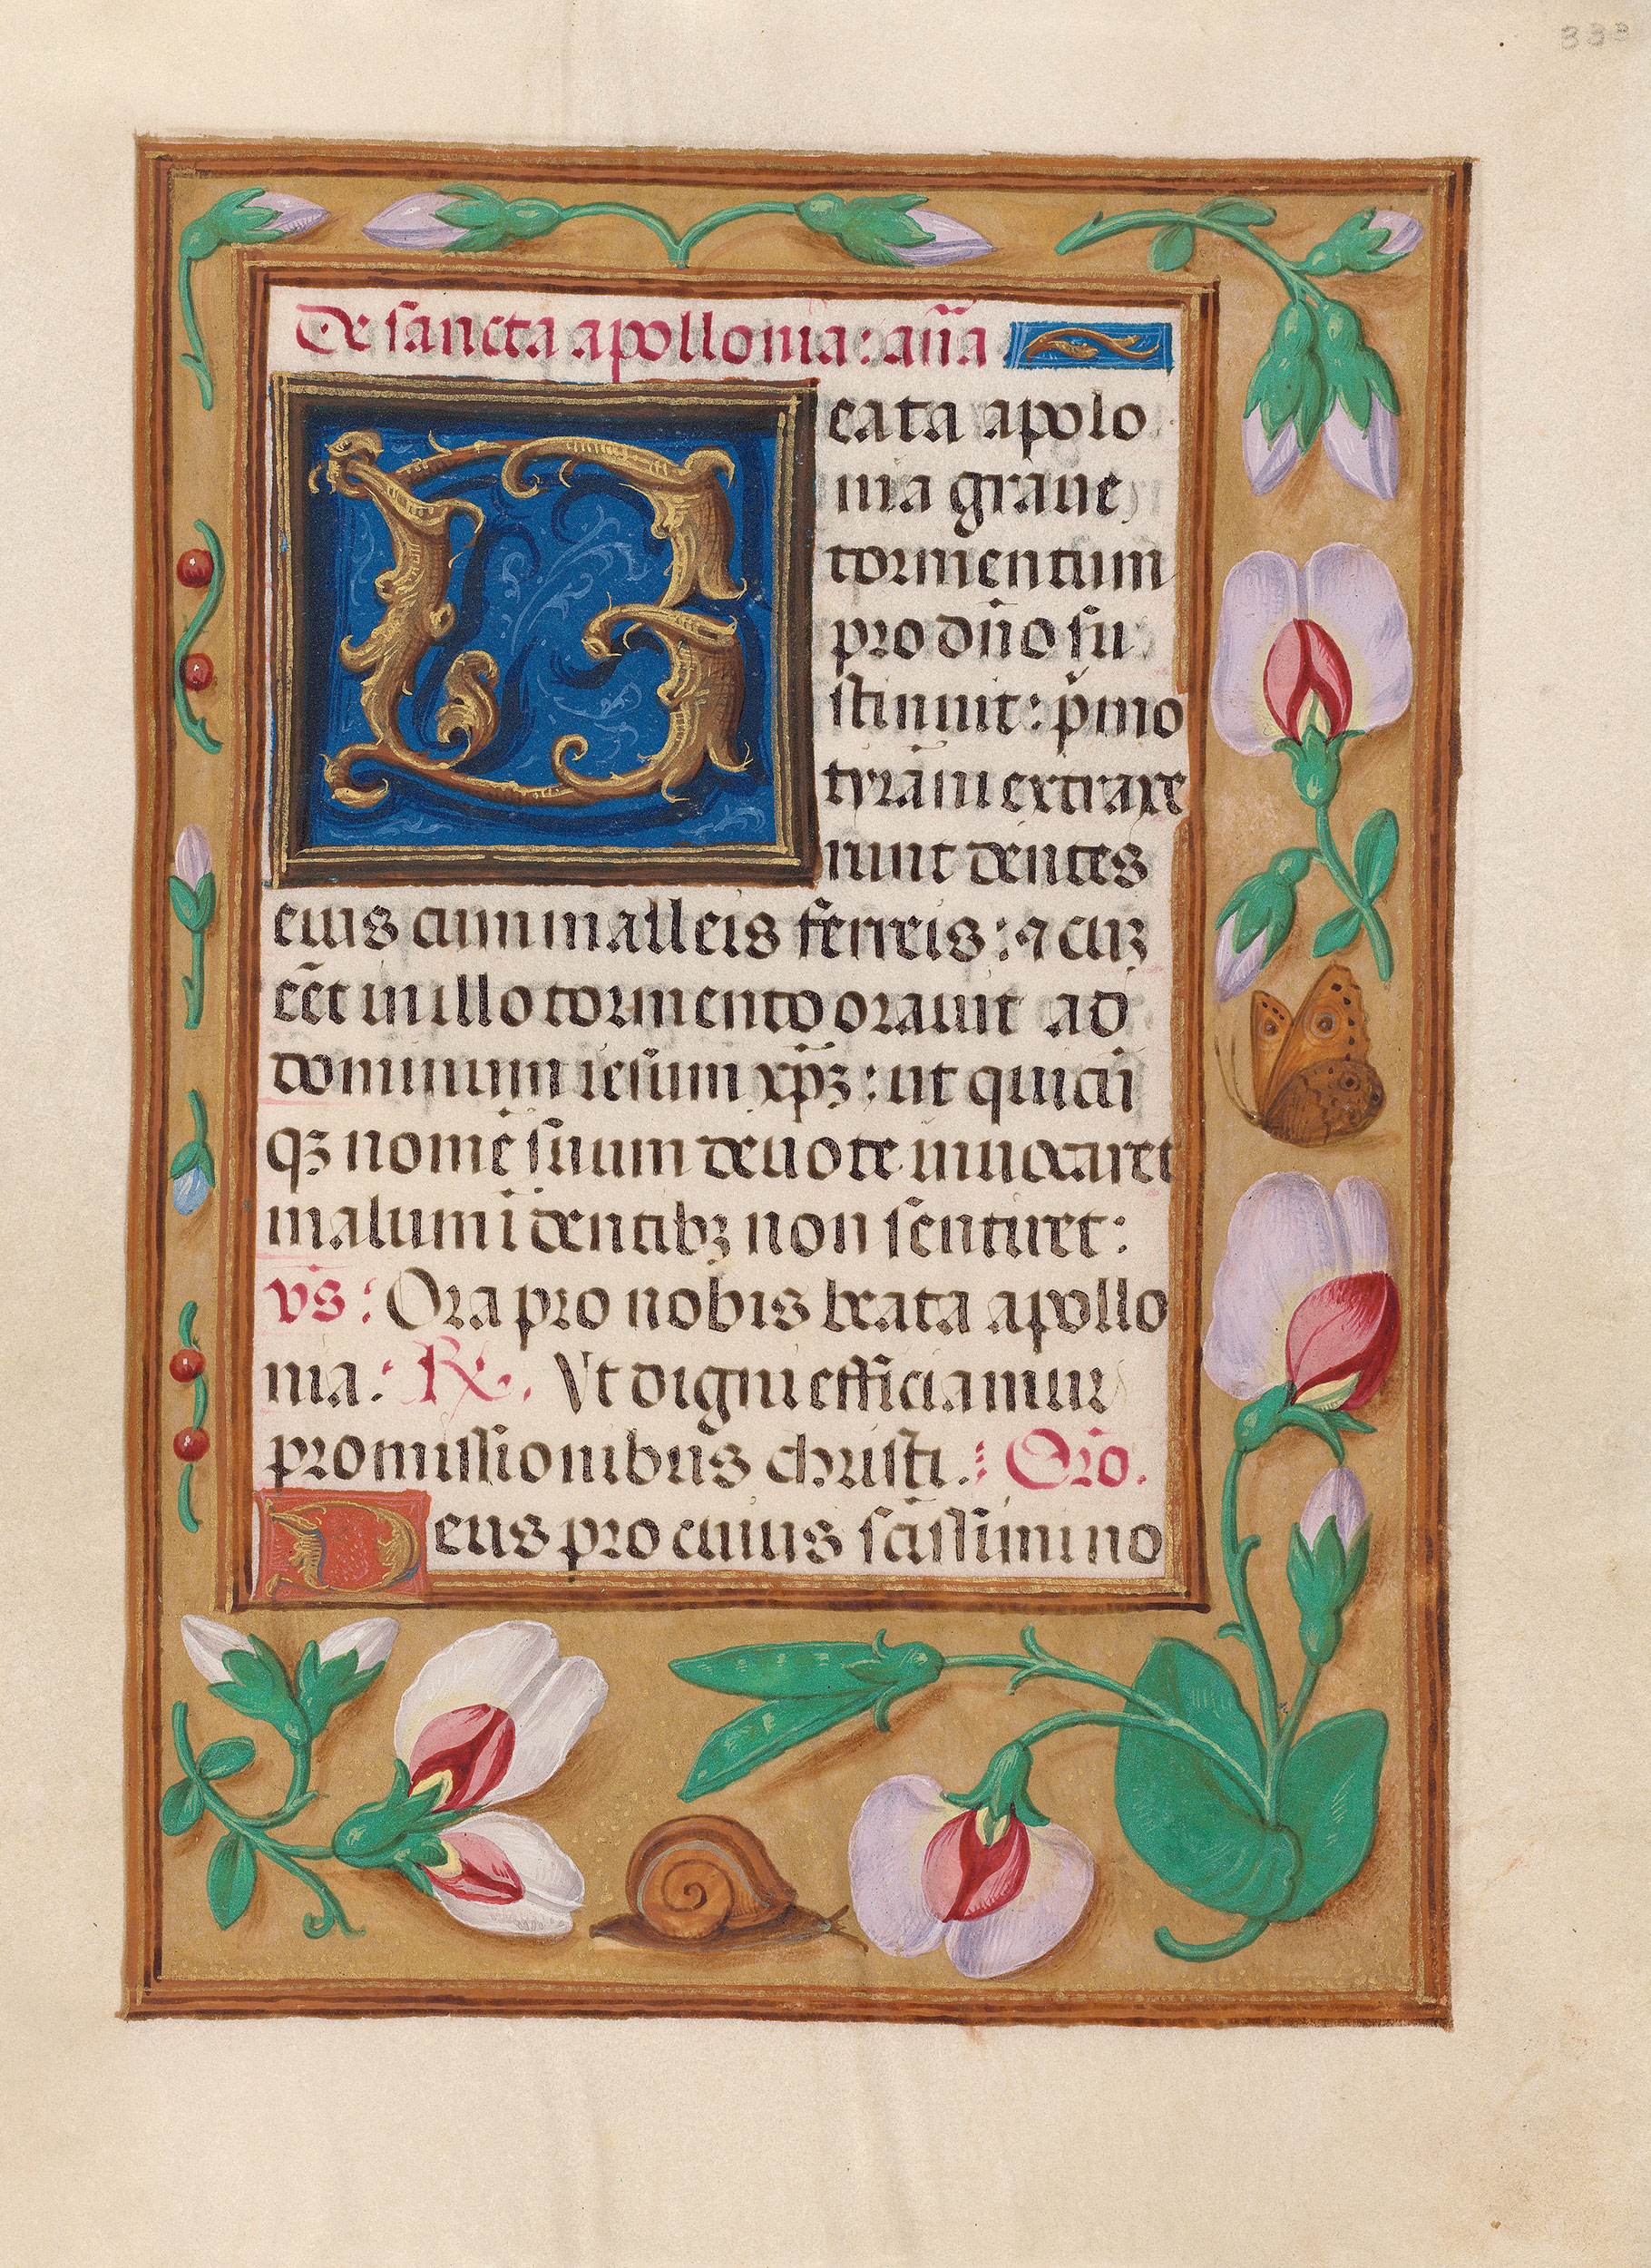 333
De sancta apollonia: an̄a
Beata apolo
nia graue
tormentum
pro dn̄o su
stinuit: pͥmo
tyrāni extraxe
runt dentes
eius cum malleis ferreis: ⁊ cuꝫ
eēt in illo tormento orauit ad
dominum iesum xp̄ꝫ: ut quicū
qꝫ nomē suum deuote inuocaret
malum ī dentibꝫ non sentiret:
v̄s: Ora pro nobis beata apollo
nia: ℟. Vt digni efficiamur
promissionibus christi: Oro̅.
Deus pro cuius scīssimi no